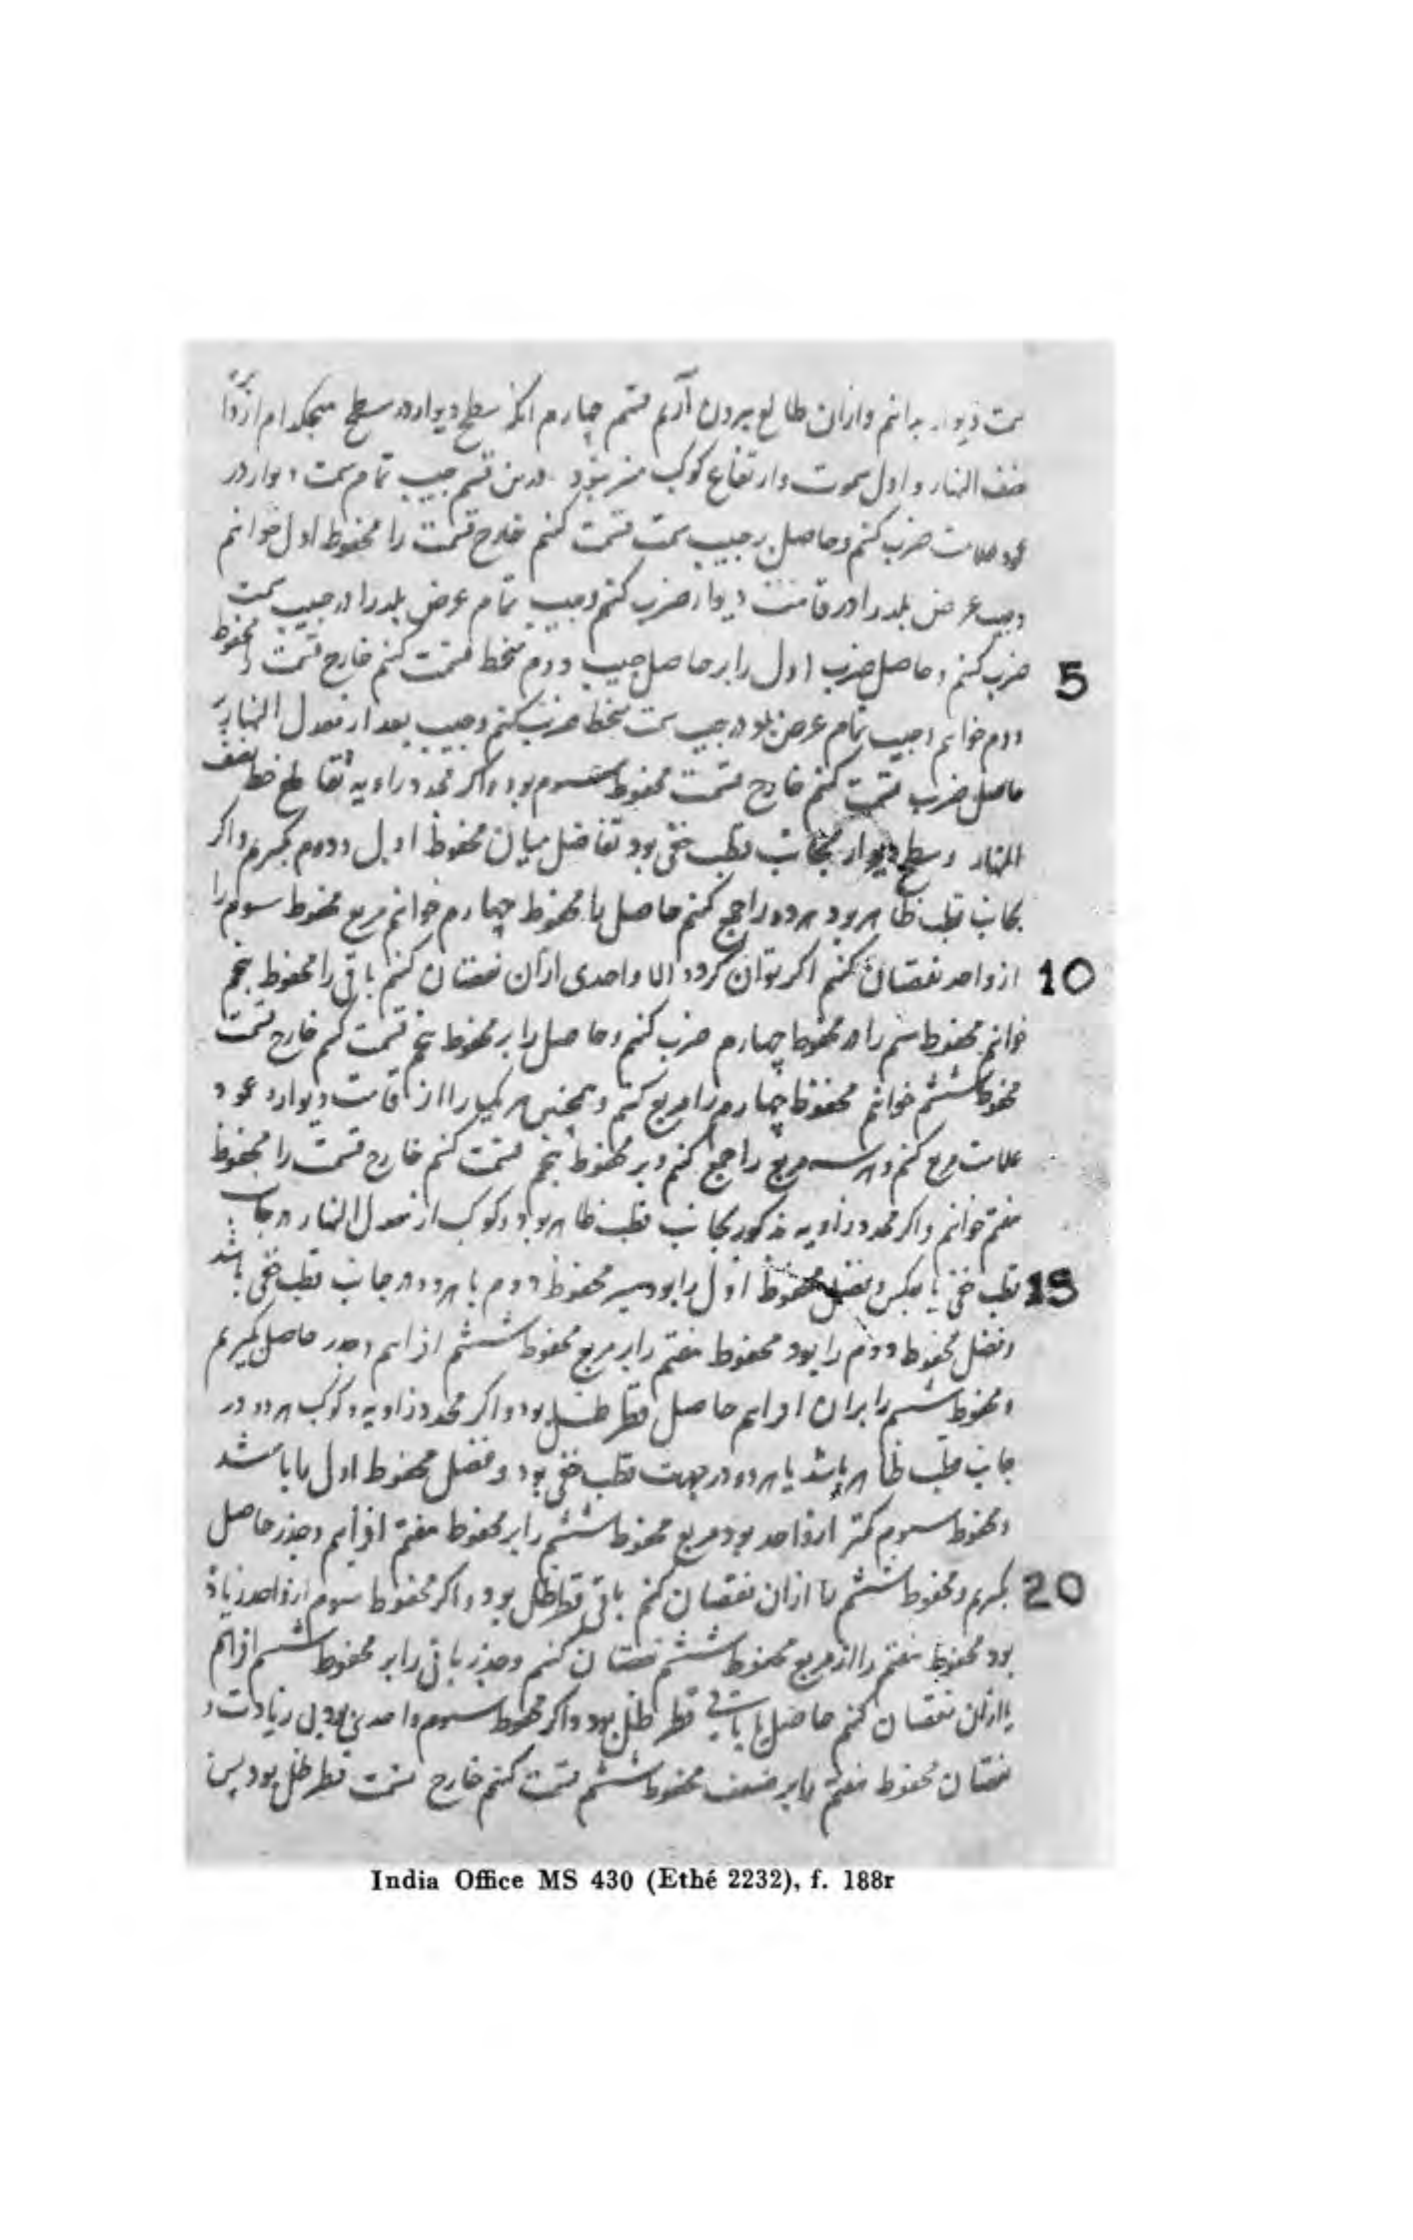 سمت دیوار بدانم و ازان طالع بیرون آرم قسم چهارم آنکه سطح دیوار در سطح هیچکدام از دوا
نصف النهار و اول سموت و ارتفاع کوکب منز نبود درین قسم جیب تمام سمت دیوار در
عمود علامت ضرب کنم و حاصل بر جیب سمت قسمت کنم خارج قسمت را محفوظ اول خوانم
و جیب عرض بلد را در قامت دیوار ضرب کنم و جیب تمام عرض بلد را در جیب سمت
ضرب کنم و حاصل ضرب اول را بر حاصل جیب دوم منحط قسمت کنم خارج قسمت را محفوظ
دوم خوانم و جیب تمام عرض بلد در جیب سمت منحط ضرب کنم و جیب بعد از معدل النهار بر
حاصل ضرب قسمت کنم خارج قسمت محفوظ سوم بود و اگر محدد زاویه تقاطع خط نصف
النهار و سطح دیوار بجانب قطب خفی بود تفاضل میان محفوظ اول و دوم بگیرم و اگر
بجانب قطب ظاهر بود هر دو را جمع کنم حاصل یا محفوظ چهارم خوانم مربع محفوظ سوم را
از واحد نقصان کنم اگر توان کرد و الا واحدی ازان نقصان کنم باقی را محفوظ پنجم
خوانم محفوظ سم را در محفوظ چهارم ضرب کنم و حاصل را بر محفوظ پنجم قسمت کنم خارج قسمت
محفوظ ششم خوانم محفوظ چهارم را مربع کنم و همچنین هر یک را از قامت دیوار و عمود
علامت مربع کنم و هر سه مربع را جمع کنم و بر محفوظ پنجم قسمت کنم خارج قسمت را محفوظ
هفتم خوانم و اگر محدد زاویه مذکور بجانب قطب ظاهر بود و کوکب از معدل النهار در جانب
قطب خفی یا بعکس و فضل محفوظ اول را بود بر محفوظ دوم یا هر دو در جانب قطب خفی باشد
و فضل محفوظ دوم را بود محفوظ هفتم را بر مربع محفوظ ششم افزایم و جذر حاصل گیرم
و محفوظ ششم را بران افزایم حاصل قطر ظل بود و اگر محدد زاویه و کوکب هر دو در
جانب قطب ظاهر باشد یا هر دو در جهت قطب خفی بود و فضل محفوظ اول را باشد
و محفوظ سوم کمتر از واحد بود مربع محفوظ ششم را بر محفوظ هفتم افزایم و جذر حاصل
بگیرم و محفوظ ششم را ازان نقصان کنم باقی قطر ظل بود و اگر محفوظ سوم از واحد زیاد
بود محفوظ هفتم را از مربع محفوظ ششم نقصان کنم و جذر باقی را بر محفوظ ششم افزایم
یا ازان نقصان کنم حاصل یا باقی قطر ظل بود و اگر محفوظ سوم واحدی بود بی زیادت و
نقصان محفوظ هفتم را بر ضعف محفوظ ششم قسمت کنم خارج قسمت قطر ظل بود پس
5
10
15
20
India Office MS 430 (Ethé 2232), f. 188r